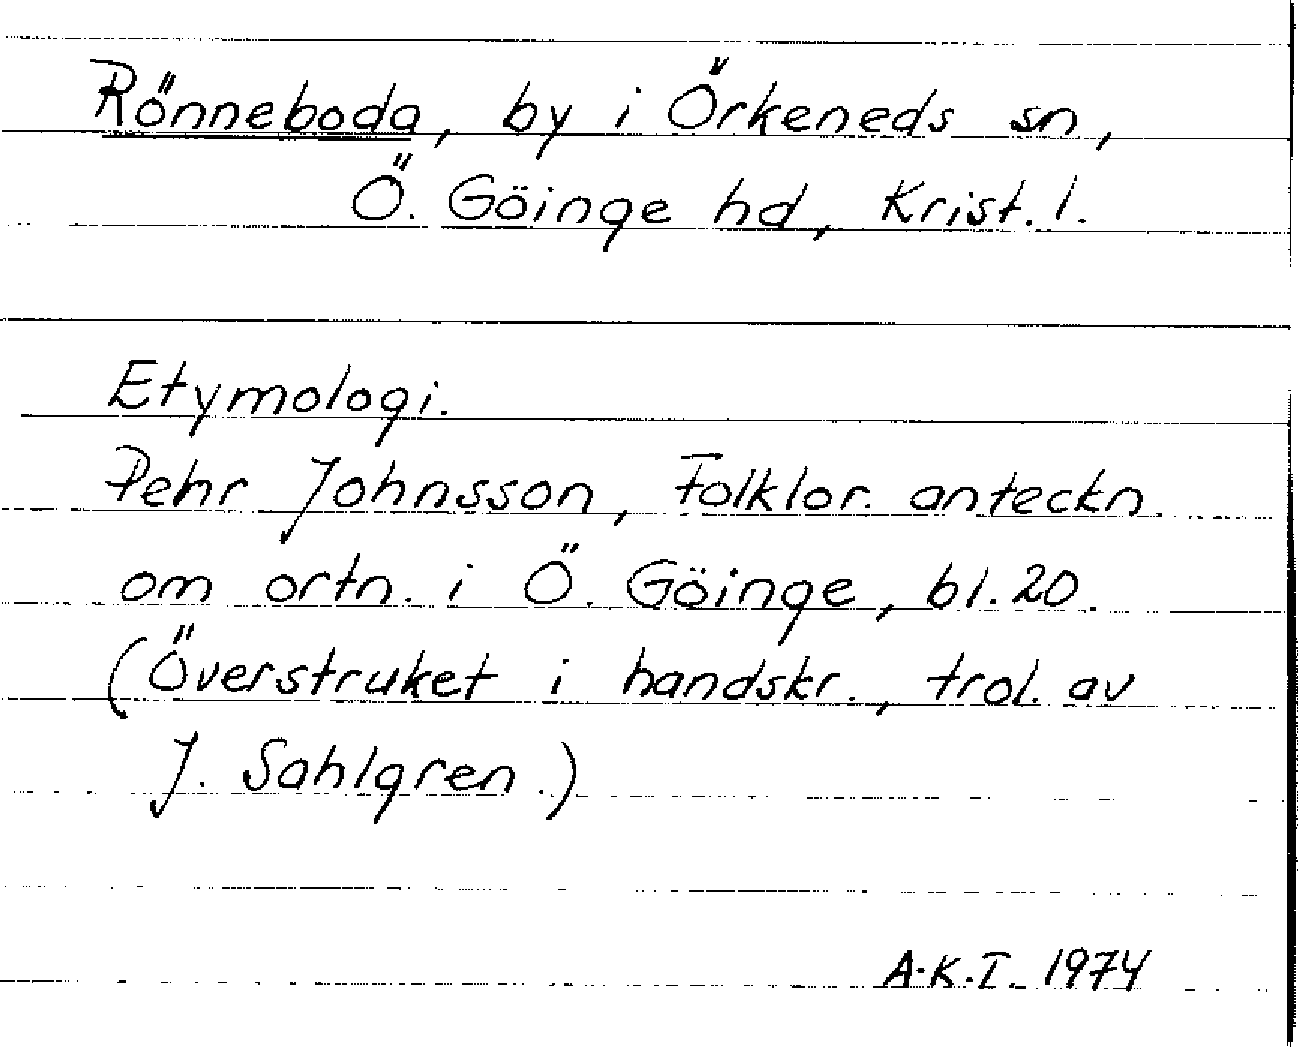 Rönneboda, by i Örkeneds sn,
Ö. Göinge hd, Krist. l.
Etymologi.
Pehr Johnsson, Folklor. anteckn.
om ortn. i Ö. Göinge, bl. 20.
(Överstruket i handskr., trol. av
J. Sahlgren.)
A-K.I. 1974